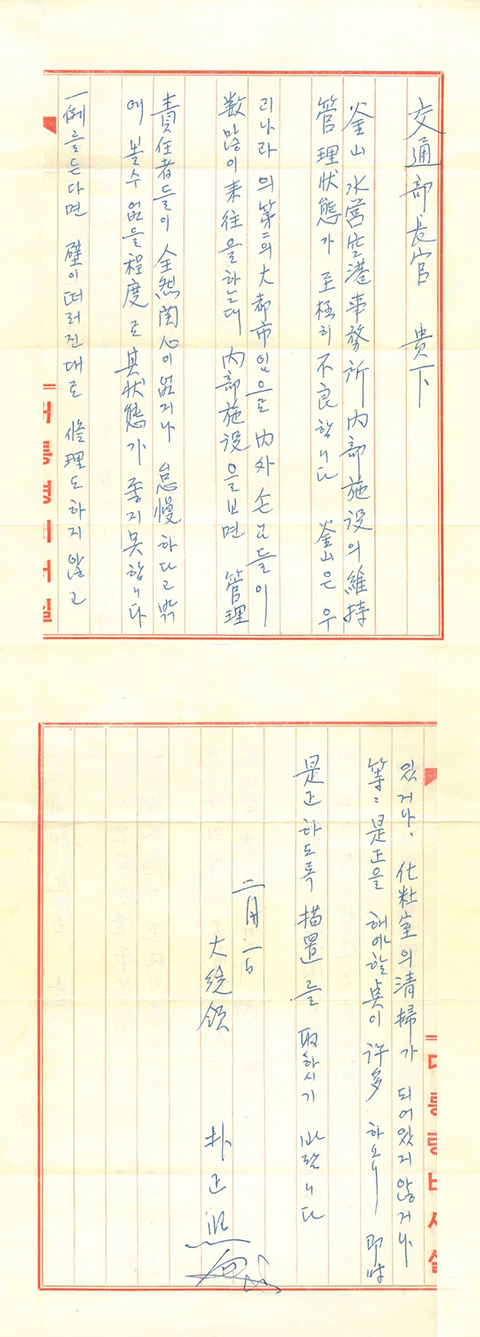 交通部長官 貴下
釜山水営空港事務所内部施設의 維持
管理狀態가 至極히 不良합니다 釜山은 우
리나라의 第二의 大都市임으로 内外손님들이
数많이 来往을하는데 内部施設을보면 管理
責任者들이 全然関心이없거나 怠慢하다고밖
에 볼수없을程度로 其状態가 좋지못합니다
一例를든다면 壁이떠러진대로 修理도하지않고
대통령비서실
있거나, 化粧室의清掃가 되어있지않거나
等々 是正을 해야할点이 許多하오니 即時
是正하도록 措置를 取하시기 바랍니다
二月
大統領 朴正熙
대통령비서실